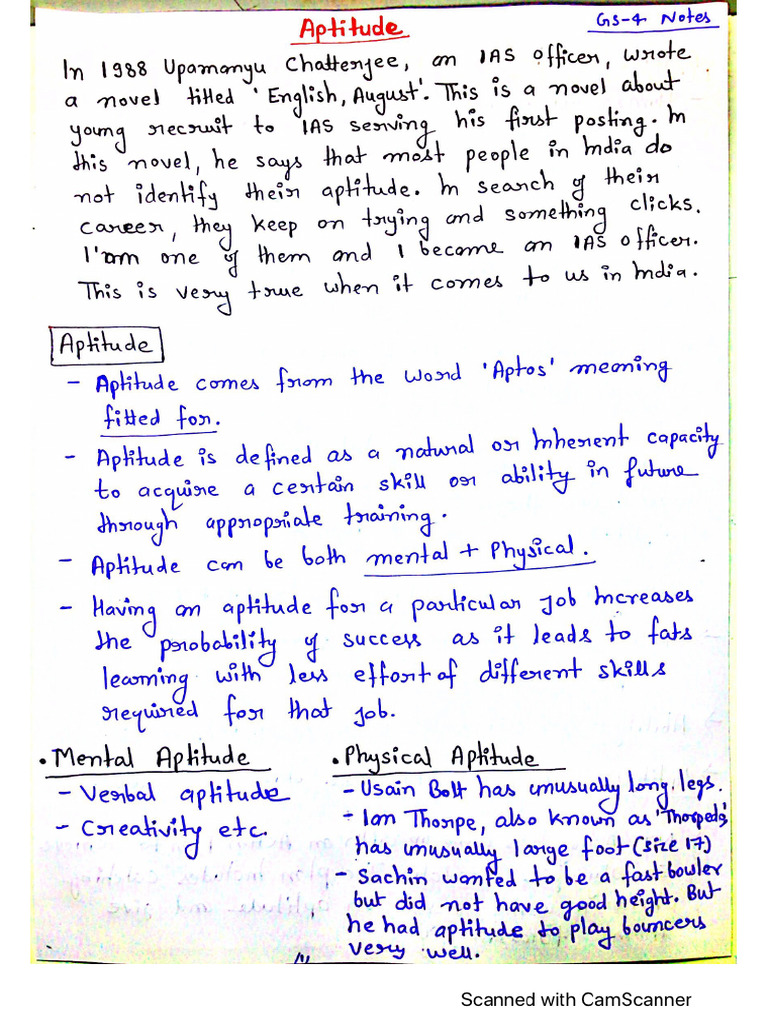 Aptitude
GS-4 Notes
In 1988 Upamanyu Chatterjee, an IAS officer, wrote
a novel titled 'English, August'. This is a novel about
young recruit to IAS serving his first posting. In
this novel, he says that most people in India do
not identify their aptitude. In search of their
career, they keep on trying and something clicks.
I'am one of them and I become an IAS officer.
This is very true when it comes to us in India.
Aptitude
- Aptitude comes from the word 'Aptos' meaning
fitted for.
- Aptitude is defined as a natural or Inherent capacity
to acquire a certain skill or ability in future
through appropriate training.
- Aptitude can be both mental + Physical.
- Having an aptitude for a particular job Increases
the probability of success as it leads to fats
learning with less effort of different skills
required for that job.
• Mental Aptitude
- Verbal aptitude
- Creativity etc.
• Physical Aptitude
- Usain Bolt has unusually long legs.
- Ian Thorpe, also known as 'Thorpedo',
has unusually large foot (size 17)
- Sachin wanted to be a fast bowler
but did not have good height. But
he had aptitude to play bouncers
very well.
Scanned with CamScanner